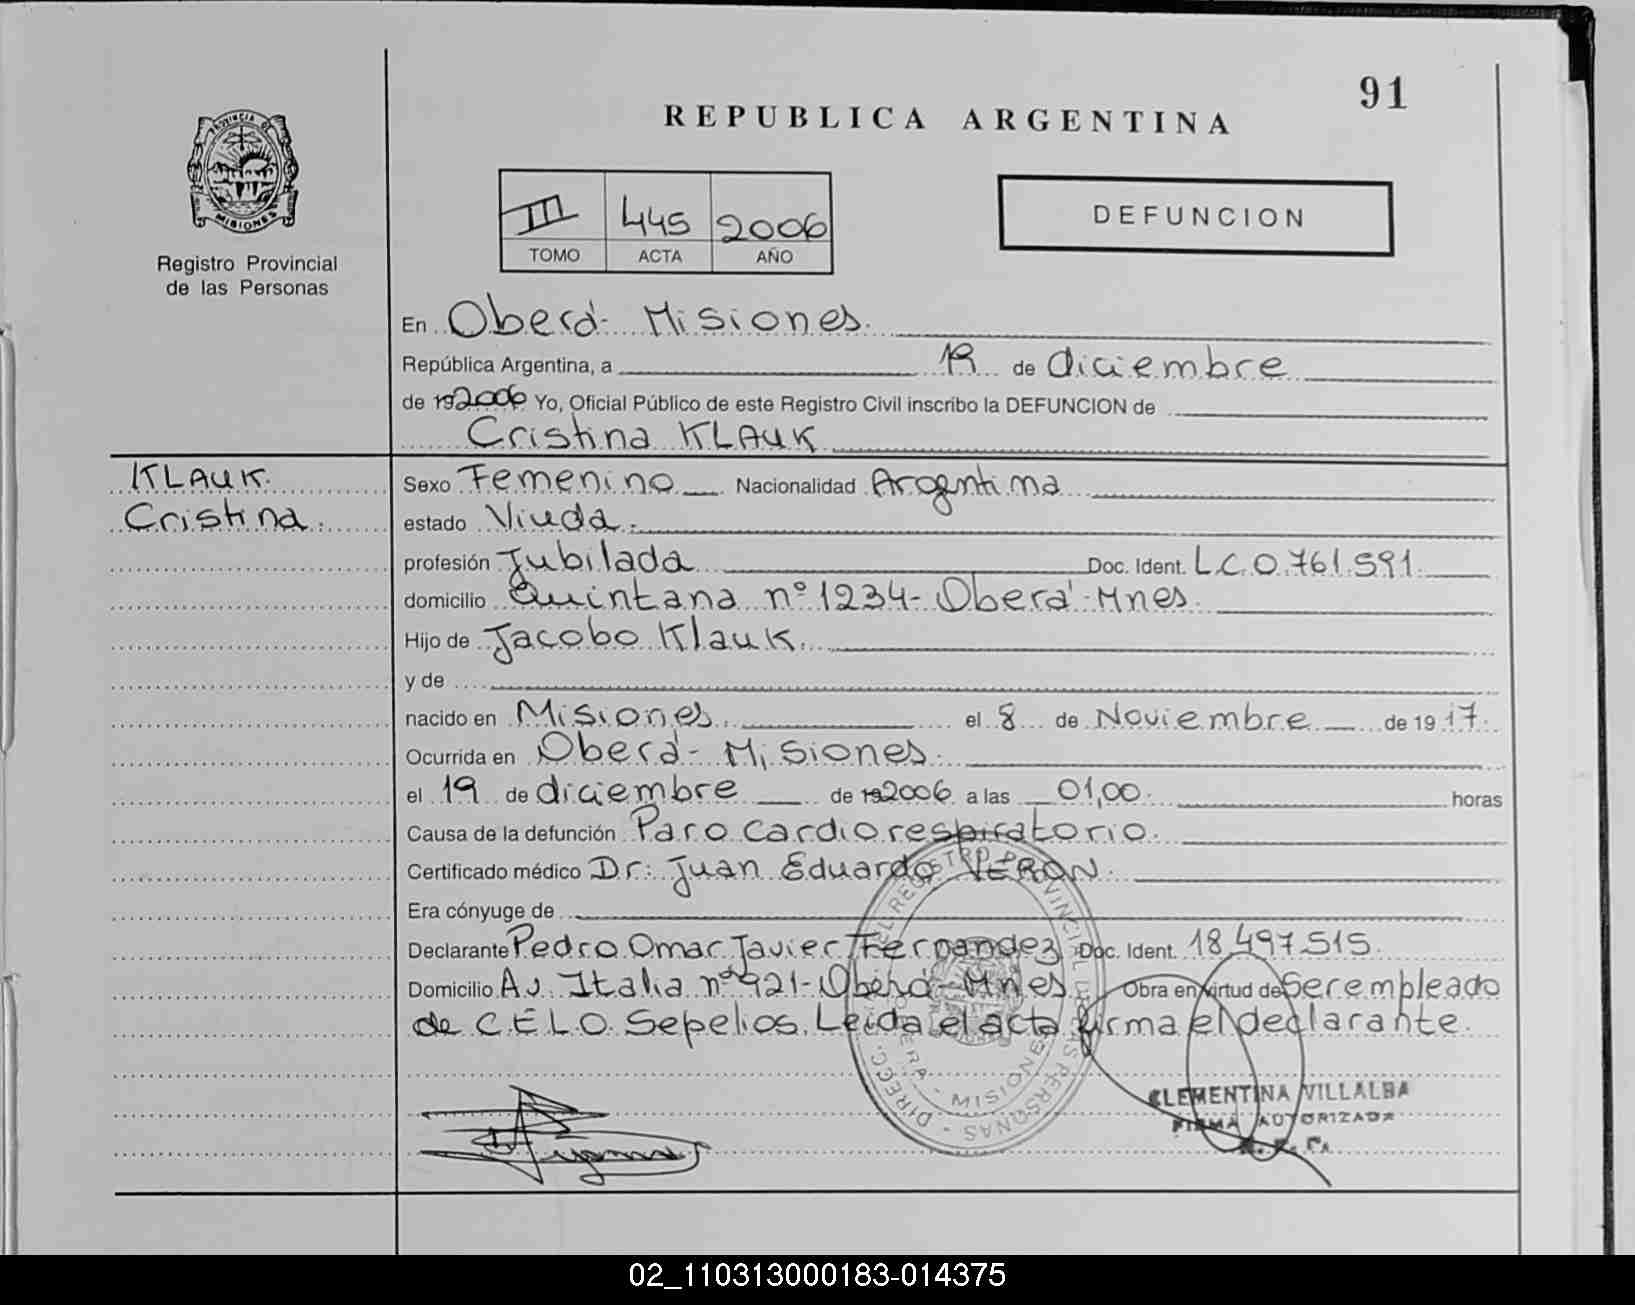 91
REPUBLICA ARGENTINA
PROVINCIA DE
MISIONES
Registro Provincial
de las Personas
III 445 2006
TOMO ACTA AÑO
DEFUNCION
En Oberá - Misiones.
República Argentina, a 19 de diciembre
de 192006 Yo, Oficial Público de este Registro Civil inscribo la DEFUNCION de
Cristina KLAUK
KLAUK
Cristina.
Sexo Femenino Nacionalidad Argentina
estado Viuda.
profesión Jubilada Doc. Ident. L.C.0.761.591.
domicilio Quintana nº 1234- Oberá - Mnes.
Hijo de Jacobo Klauk.
y de
nacido en Misiones el 8 de Noviembre de 1917.
Ocurrida en Oberá - Misiones.
el 19 de diciembre de 192006 a las 01,00. horas
Causa de la defunción Paro cardiorespiratorio.
Certificado médico Dr: Juan Eduardo VERON.
Era cónyuge de
Declarante Pedro Omar Javier Fernandez Doc. Ident. 18.497.515.
Domicilio Av. Italia nº 921- Oberá - Mnes Obra en virtud de Ser empleado
de C.E.L.O. Sepelios. Leida el acta firma el declarante.
DIRECC. DEL REGISTRO PROVINCIAL DE LAS PERSONAS -
OBERA - MISIONES
CLEMENTINA VILLALBA
FIRMA AUTORIZADA
02_110313000183-014375